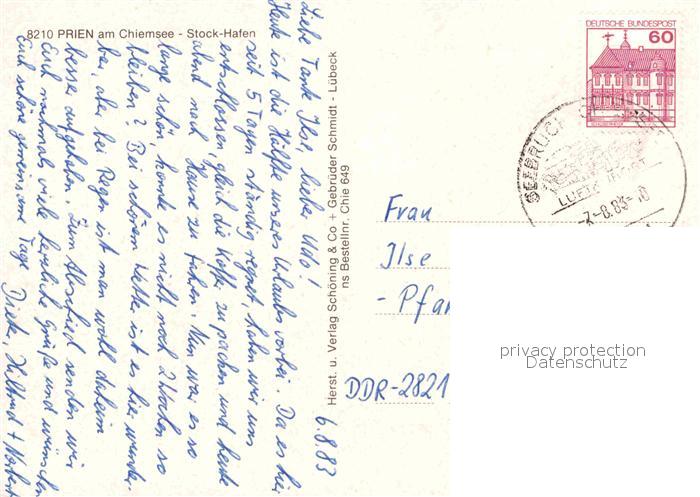 8210 PRIEN am Chiemsee - Stock-Hafen
6.8.83
Liebe Tante Ilse, liebe Udo!
Heute ist die Hälfte unseres Urlaubs vorbei. Da es hier
seit 5 Tagen ständig regnet, haben wir uns
entschlossen, gleich die Koffer zu packen und heute
abend nach Hause zu fahren. Nun war es so
lange schön, konnte es nicht noch 2 Wochen so
bleiben? Bei schönem Wetter ist es hier wunder-
bar, aber bei Regen ist man wohl daheim
besser aufgehoben. Zum Abschied senden wir
Euch nochmals viele herzliche Grüße und wünschen
Euch schöne gemeinsame Tage Dieter, Hiltrud + Norbert
Herst. u. Verlag Schöning & Co + Gebrüder Schmidt - Lübeck
ns Bestellnr. Chie 649
DEUTSCHE BUNDESPOST
60
SEEBRUCK
LUFTKURORT
-7.-8.83-10
Frau
Ilse
- Pfar
DDR-2821
privacy protection
Datenschutz